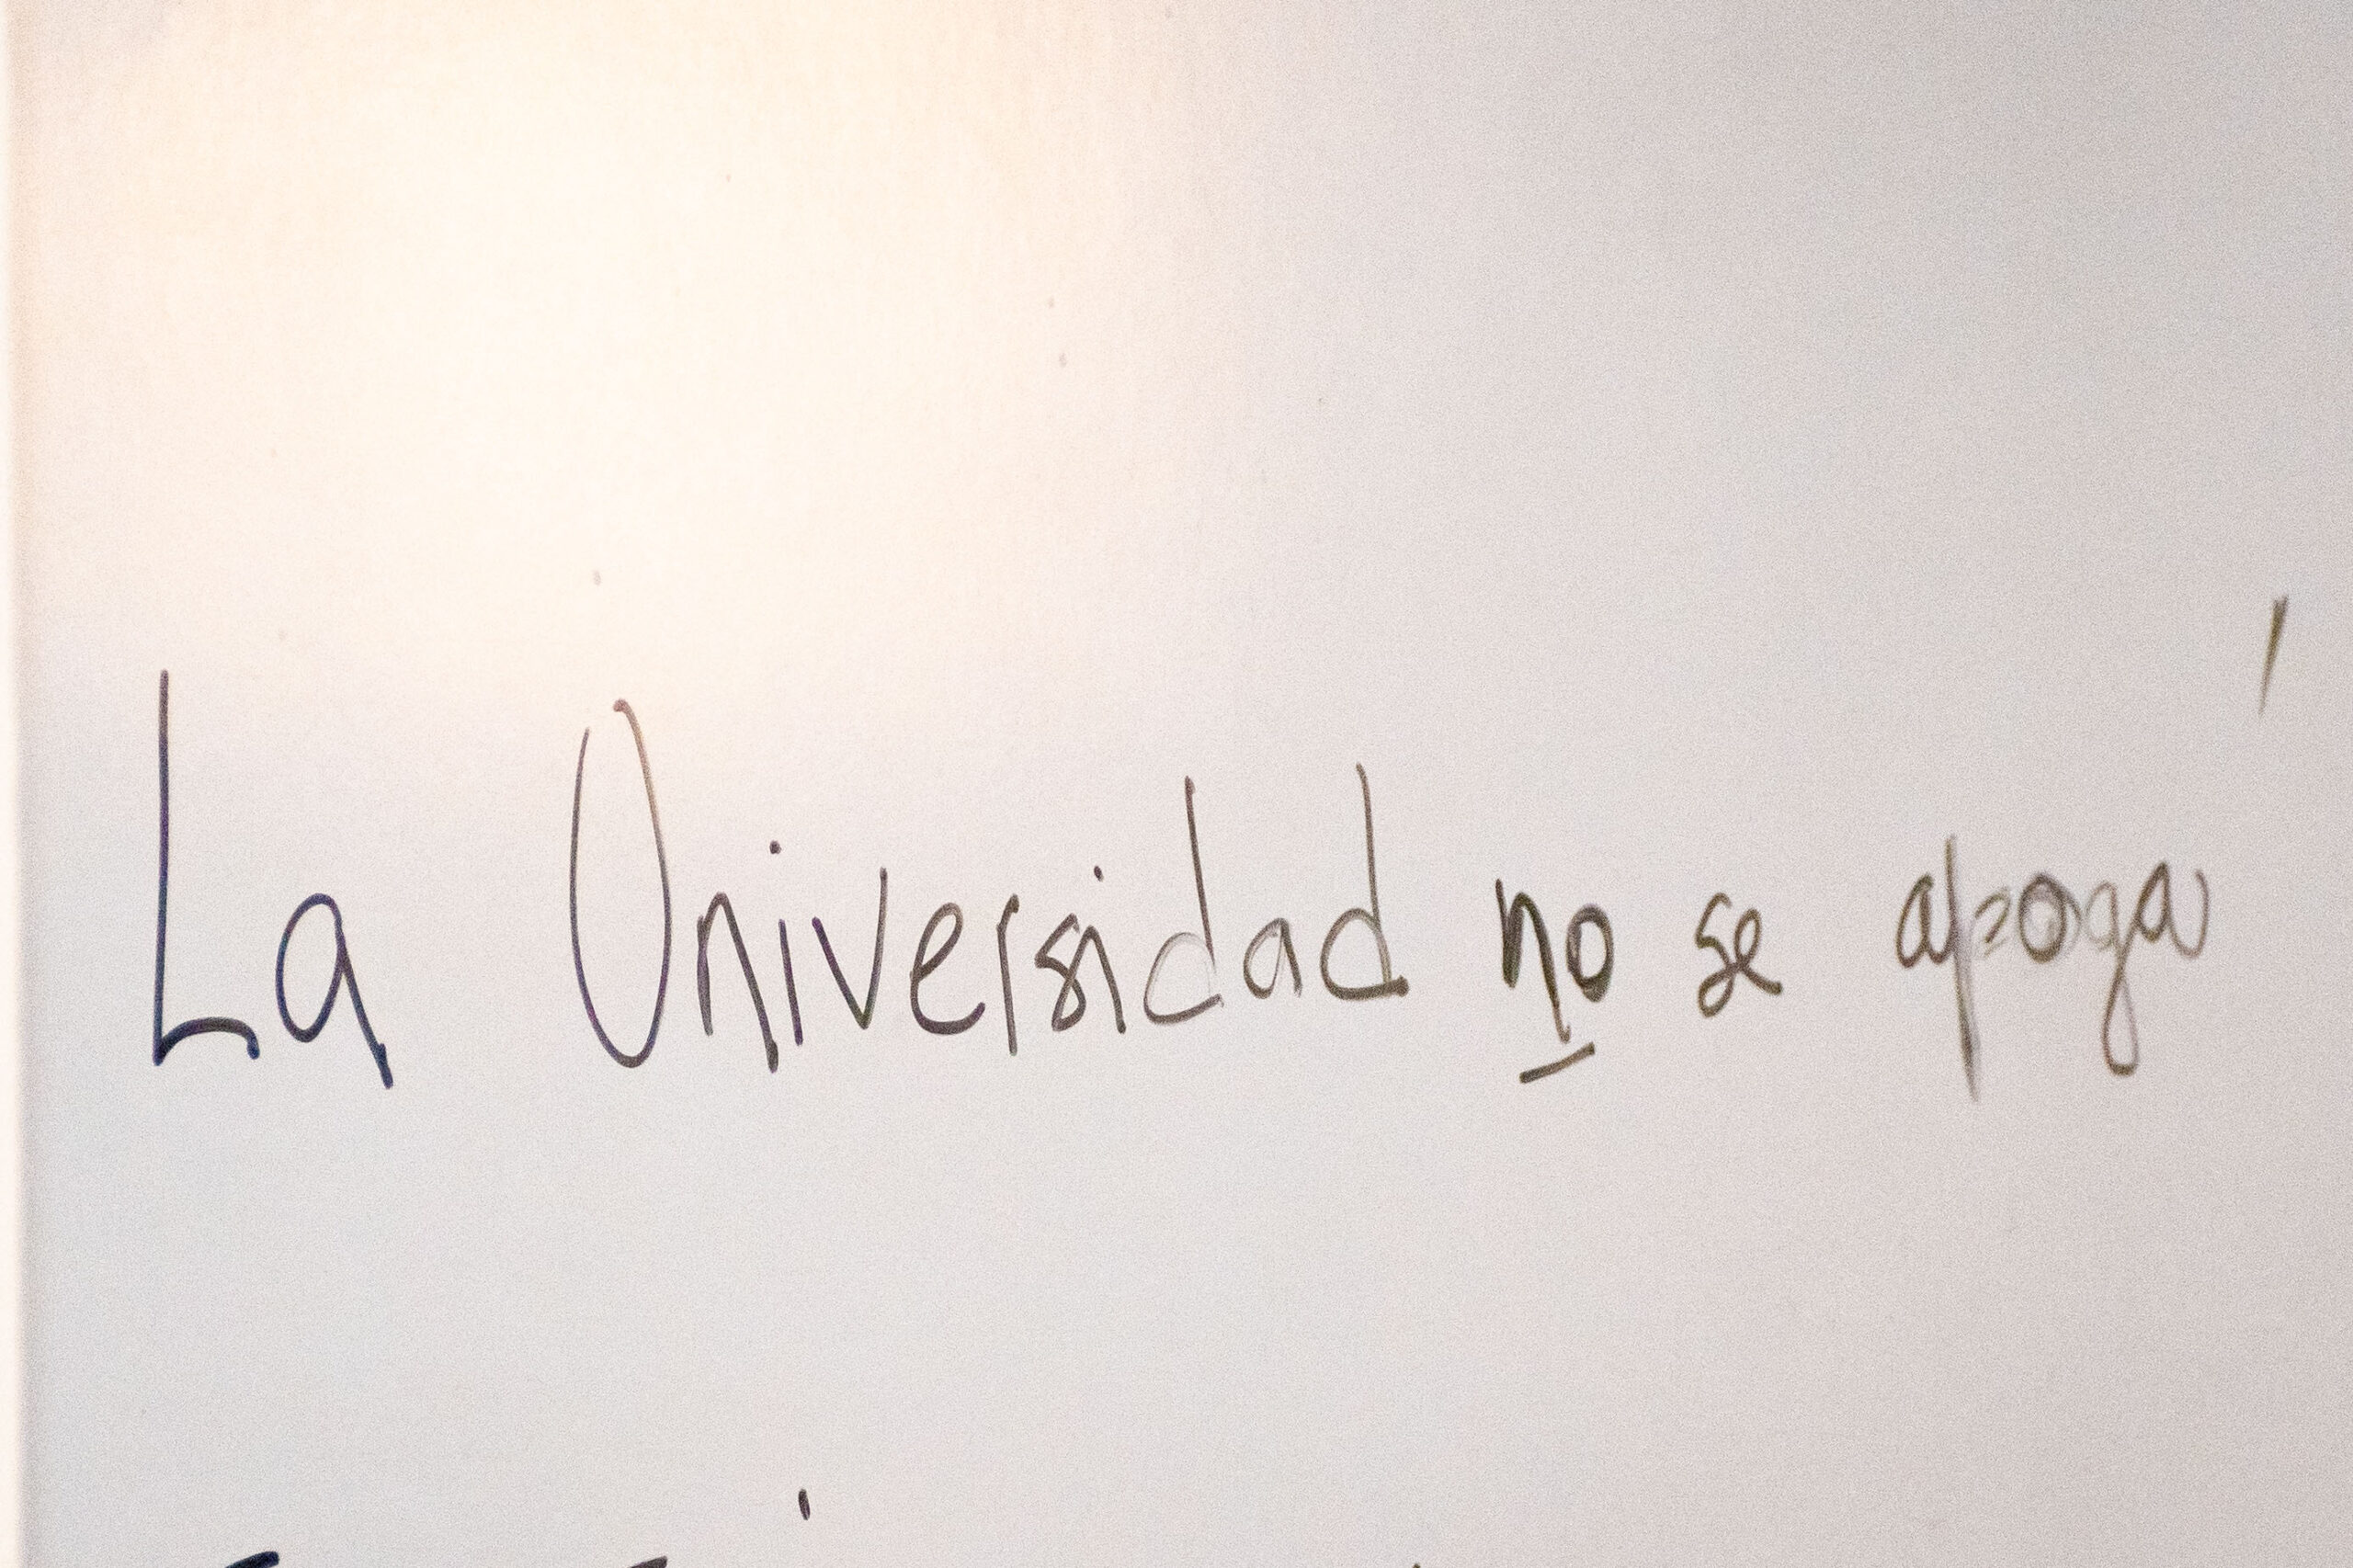 La Universidad no se apoga'